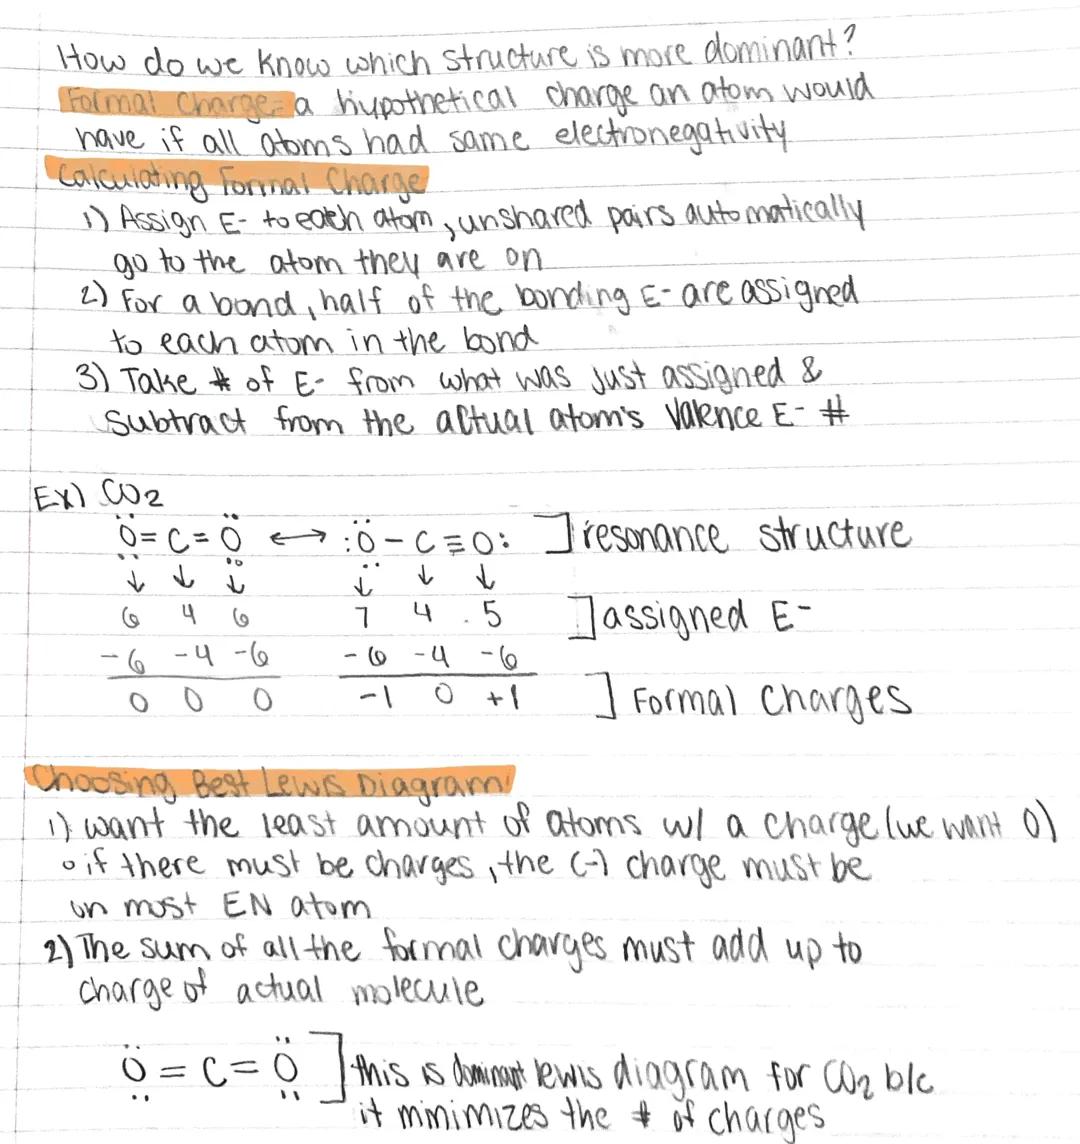 How do we know which structure is more dominant?
Formal Charge = a hypothetical charge an atom would
have if all atoms had same electronegativity
Calculating Formal Charge
1) Assign E- to each atom, unshared pairs automatically
go to the atom they are on
2) For a bond, half of the bonding E- are assigned
to each atom in the bond
3) Take # of E- from what was just assigned &
subtract from the actual atom's valence E- #
Ex) CO2
Ö=C=Ö ↔ :Ö-C≡O: ] resonance structure
↓ ↓ ↓ ↓ ↓ ↓
6 4 6 7 4 5 ] assigned E-
-6 -4 -6 -6 -4 -6
0 0 0 -1 0 +1 ] Formal Charges
Choosing Best Lewis Diagram
1) want the least amount of atoms w/ a charge (we want 0)
◦ if there must be charges, the (-) charge must be
on most EN atom
2) The sum of all the formal charges must add up to
charge of actual molecule
Ö=C=Ö ] this is dominant lewis diagram for CO2 b/c
it minimizes the # of charges